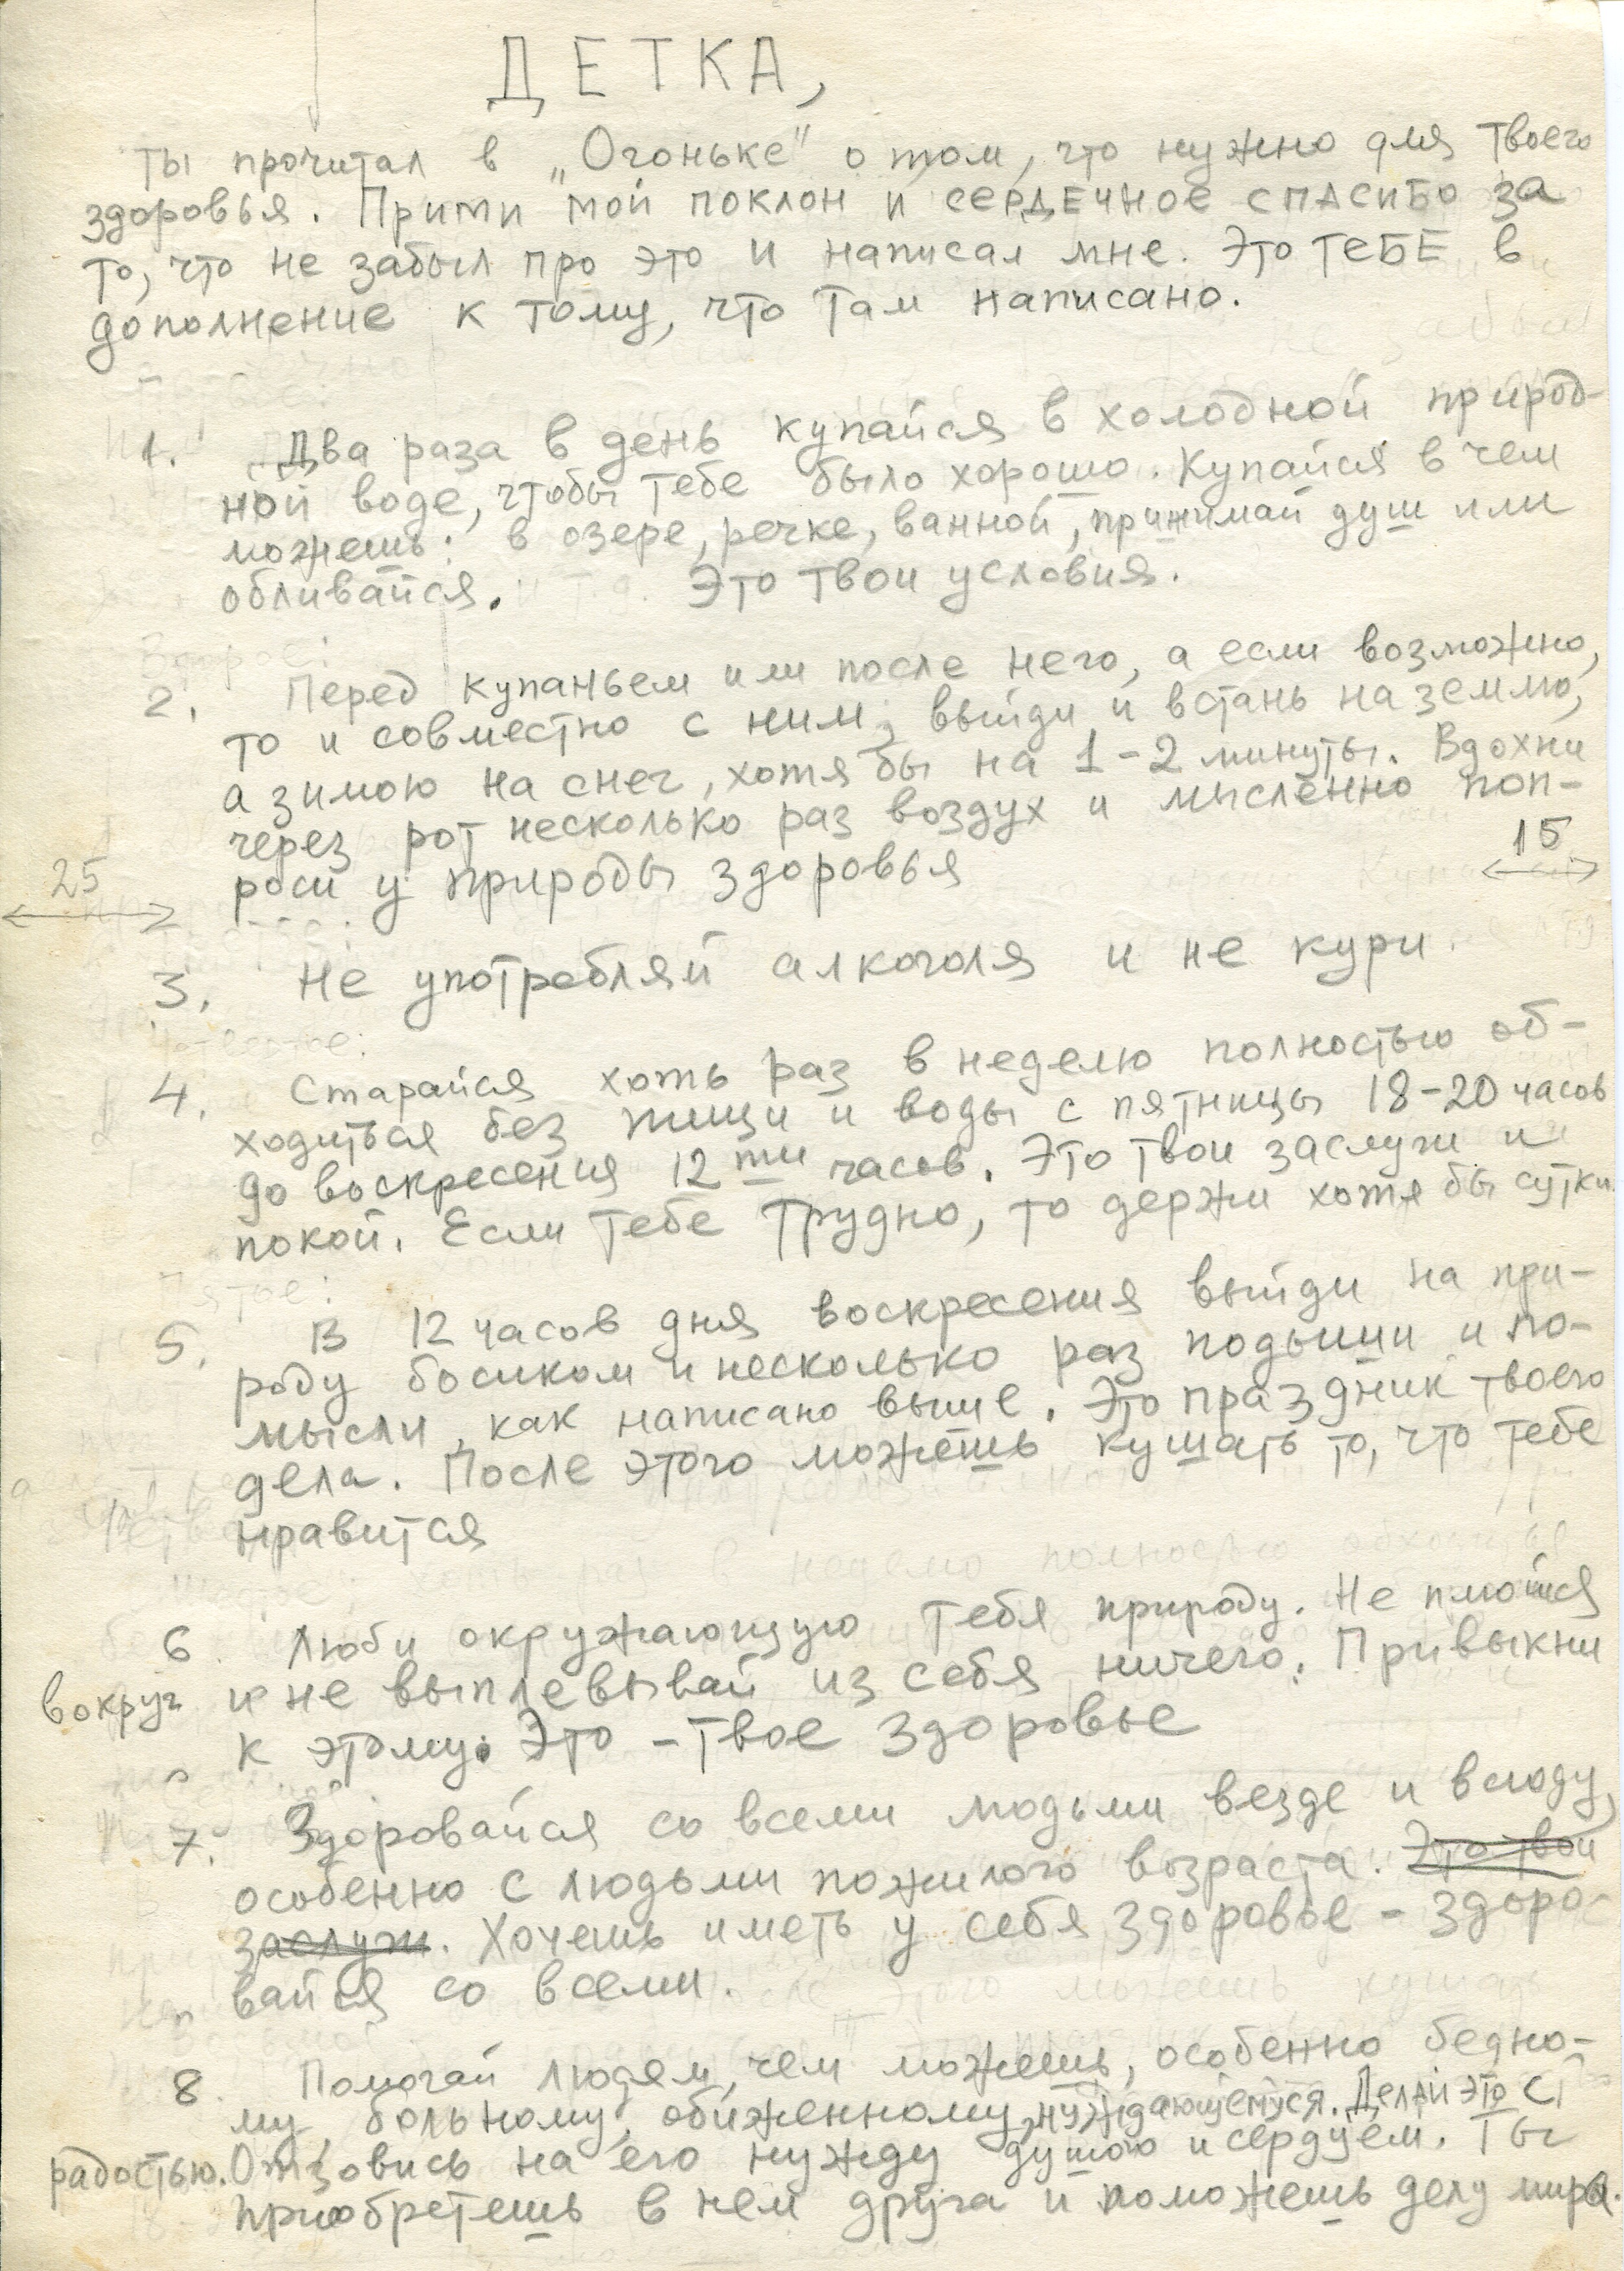 ДЕТКА,
ты прочитал в „Огоньке" о том, что нужно для твоего
здоровья. Прими мой поклон и СЕРДЕЧНОЕ СПАСИБО за
то, что не забыл про это и написал мне. Это ТЕБЕ в
дополнение к тому, что там написано.
1. Два раза в день купайся в холодной природ-
ной воде, чтобы тебе было хорошо. Купайся в чем
можешь: в озере, речке, ванной, принимай душ или
обливайся. Это твои условия.
2. Перед купаньем или после него, а если возможно,
то и совместно с ним, выйди и встань на землю,
а зимою на снег, хотя бы на 1-2 минуты. Вдохни
через рот несколько раз воздух и мысленно поп-
роси у природы здоровья
25
15
3. Не употребляй алкоголя и не кури.
4. Старайся хоть раз в неделю полностью об-
ходиться без пищи и воды с пятницы 18-20 часов
до воскресения 12ти часов. Это твои заслуги и
покой. Если тебе трудно, то держи хотя бы сутки.
5. В 12 часов дня воскресения выйди на при-
роду босиком и несколько раз подыши и по-
мысли, как написано выше. Это праздник твоего
дела. После этого можешь кушать то, что тебе
нравится
6. Люби окружающую тебя природу. Не плюйся
вокруг и не выплевывай из себя ничего. Привыкни
к этому. Это – твое здоровье
7. Здоровайся со всеми людьми везде и всюду,
особенно с людьми пожилого возраста. Это твои
заслуги. Хочешь иметь у себя здоровье - здоро-
вайся со всеми.
8. Помогай людям, чем можешь, особенно бедно-
му, больному, обиженному, нуждающемуся. Делай это с
радостью. Отзовись на его нужду душою и сердцем. Ты
приобретешь в нем друга и поможешь делу мира.